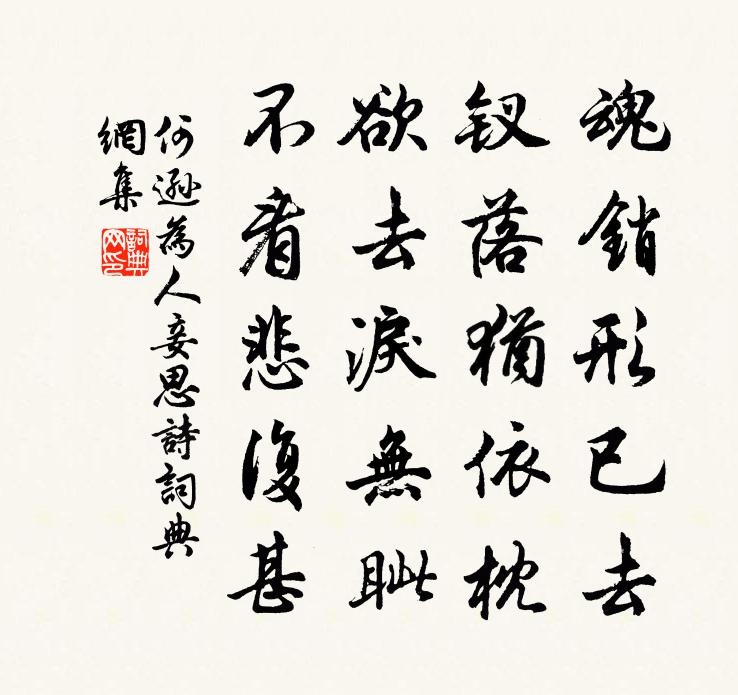 魂銷形已去
釵落猶依枕
欲去淚無眦
不看悲復甚
何遜為人妾思詩詞典
網集
詞典
网印